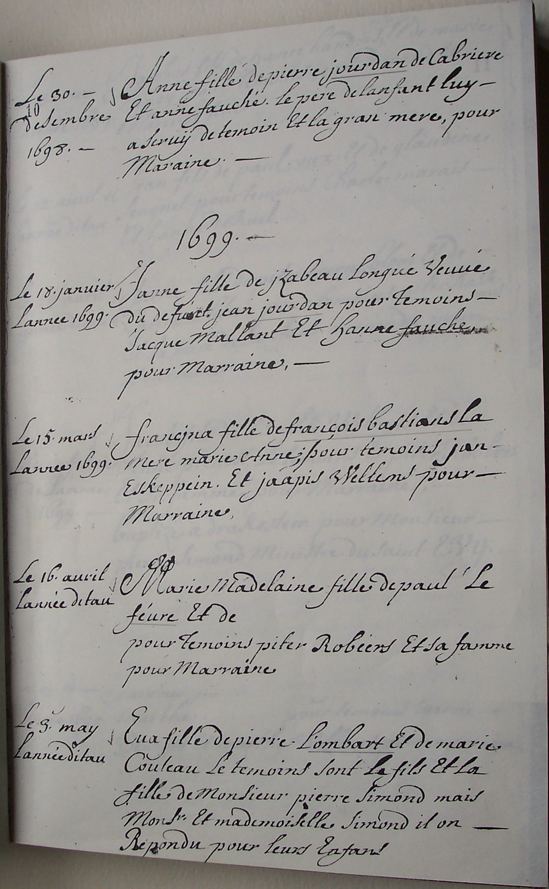 Le 30. —
10
desembre
1698. —
Anne fille de pierre jourdan de Cabriere
Et anne fauche. le pere de lanfant luy-
a seruÿ de temoin Et la gran mere, pour
Maraine. —
1699. —
Le 18. janvier
Lannee 1699.
Janne fille de jzabeau Longue Veuue
du defunt jean jourdan pour temoins —
Jacque Mallant Et hanne fauche
pour Marraine, —
Le 15. mars
Lannee 1699.
francjna fille de françois bastians la
mere marie Anne; pour temoins jan-
Eskeppein. Et jaapis Wellens pour —
Marraine,
Le 16. auril
Lannée ditau
Marie Madelaine fille de paul Le
féure Et de
pour temoins piter Robéers Et sa famme
pour Marraine
Le 3. may
Lannéeditau
Eua fille de pierre Lombart Et de marie
Couteau Le temoins sont le fils Et La
fille de Monsieur pierre Simond mais
Monsr. Et mademoiselle Simond il on —
Repondu pour leurs Enfans